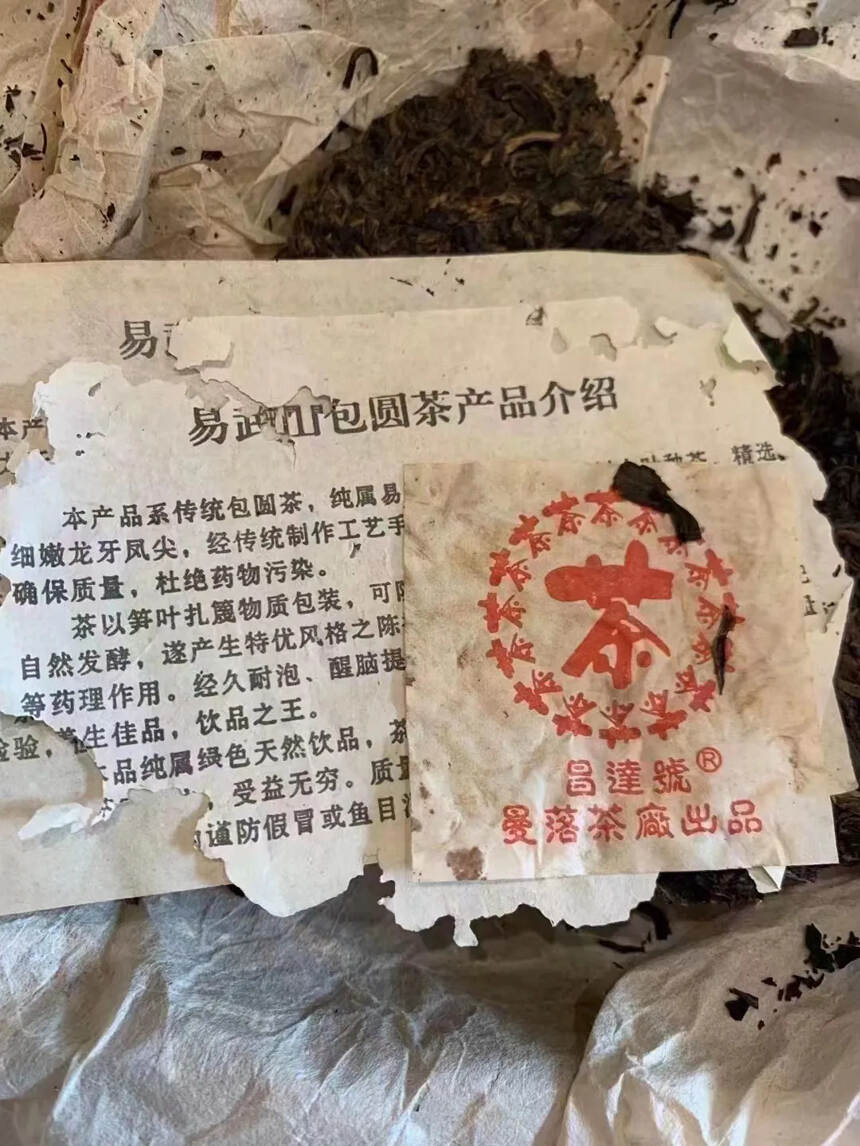 易武
易武山包圆茶产品介绍
本产
本产品系传统包圆茶，纯属易
精选
细嫩龙牙凤尖，经传统制作工艺手
确保质量，杜绝药物污染。
茶以笋叶扎篾物质包装，可防
自然发酵，遂产生特优风格之陈
等药理作用。经久耐泡、醒脑提
检验，养生佳品，饮品之王。
本品纯属绿色天然饮品，茶
受益无穷。质量
谨防假冒或鱼目
茶
昌達號®
曼落茶廠出品